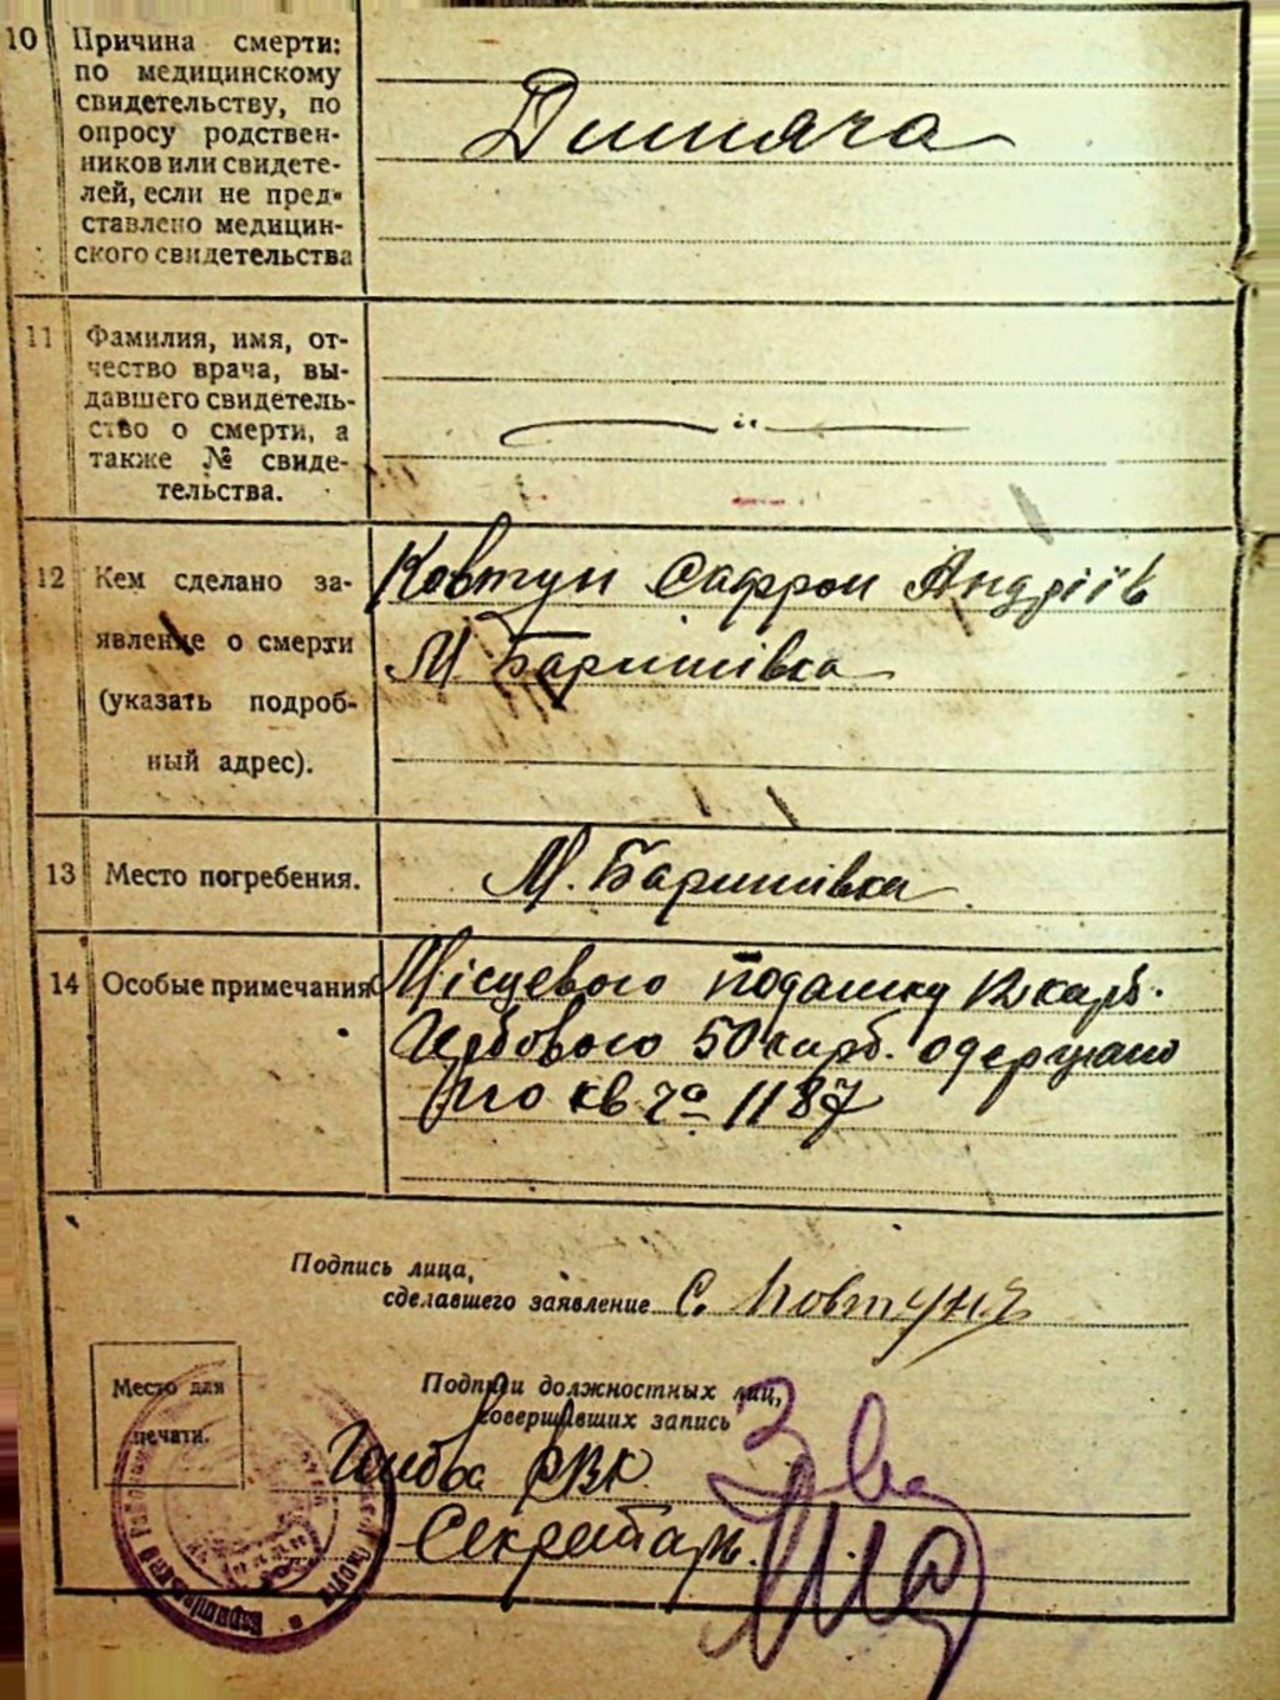 10 Причина смерти:
по медицинскому
свидетельству, по
опросу родствен-
ников или свидете-
лей, если не пред-
ставлено медицин-
ского свидетельства
Дитяча
11 Фамилия, имя, от-
чество врача, вы-
давшего свидетель-
ство о смерти, а
также № свиде-
тельства.
— " —
12 Кем сделано за-
явление о смерти
(указать подроб-
ный адрес).
Ковтун Сафрон Андріїв
М. Баришівка
13 Место погребения.
М. Баришівка
14 Особые примечания
Місцевого податку 12 карб.
Гербового 50 карб. одержано
по кв 1187
Подпись лица,
сделавшего заявление С. Ковтун
Место для
печати.
Подписи должностных лиц,
совершивших запись
Голова РВК
Секретарь